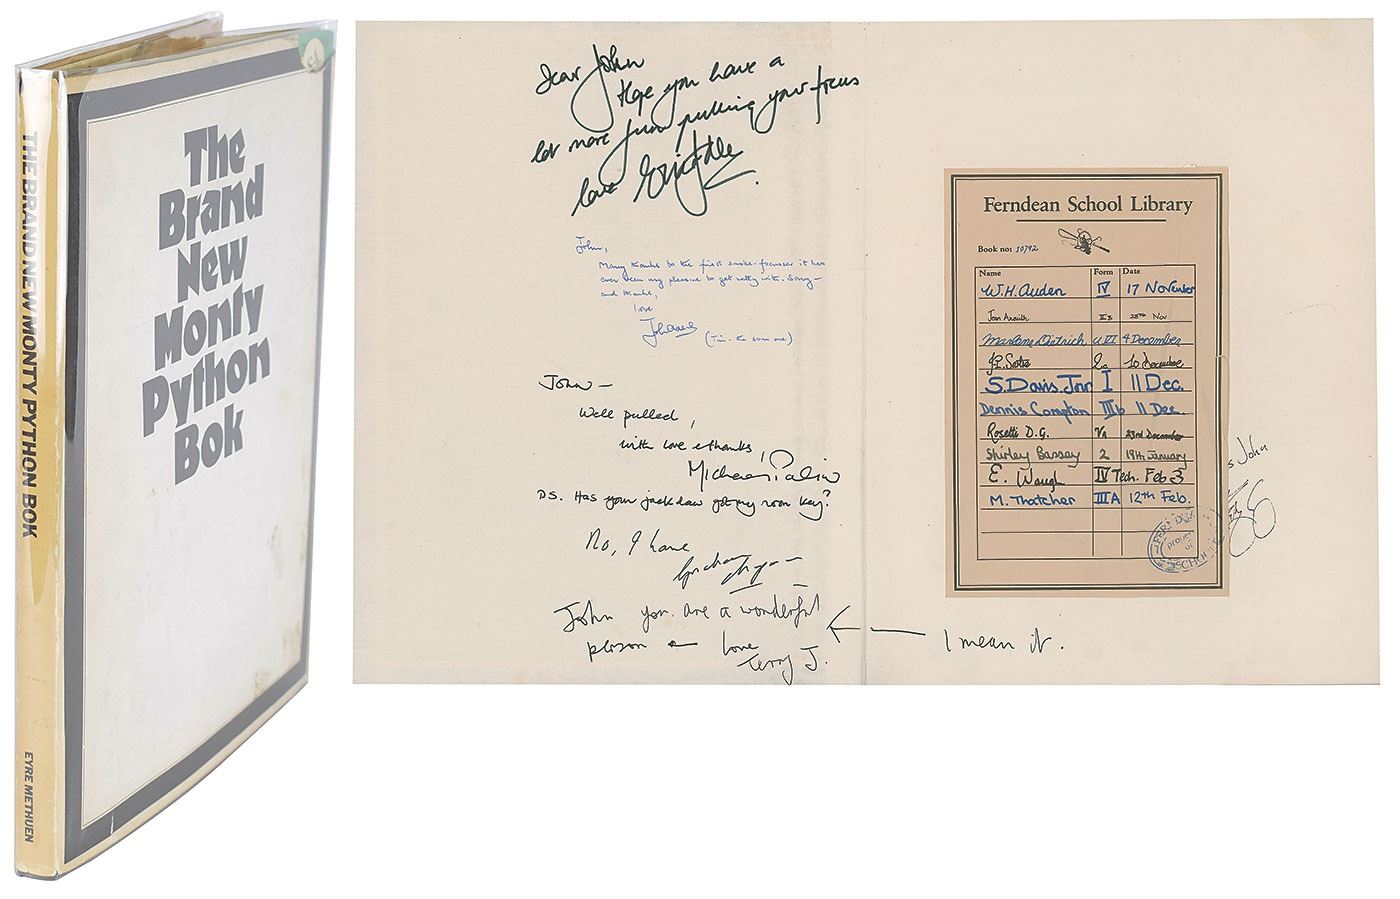 THE BRAND NEW MONTY PYTHON BOK
EYRE METHUEN
The
Brand
New
Monty
Python
Bok
Dear John
Hope you have a
lot more fun pulling your focus
love Eric Idle
John,
Many thanks to the finest smoke-focusser it has
ever been my pleasure to get ratty with. Sorry –
and thanks,
love
John
John –
Well pulled,
with love & thanks,
Michael Palin
P.S. Has your jackdaw got my room key?
No, I have
Graham
John you are a wonderful
person – love
Terry J.
I mean it.
Ferndean School Library
Book no: 10792
Name Form Date
W.H. Auden IV 17 November
Jean Anouilh 28th Nov
Marlene Dietrich U VI 4 December
J.P. Sartre 10 Decembre
S. Davis. Jnr I 11 Dec.
Dennis Compton IIIb 11 Dec
Rosetti D.G. Va 23rd December
Shirley Bassey 2 19th January
E. Waugh IV Tech. Feb 3
M. Thatcher IIIA 12th Feb.
SCHOOL
s John